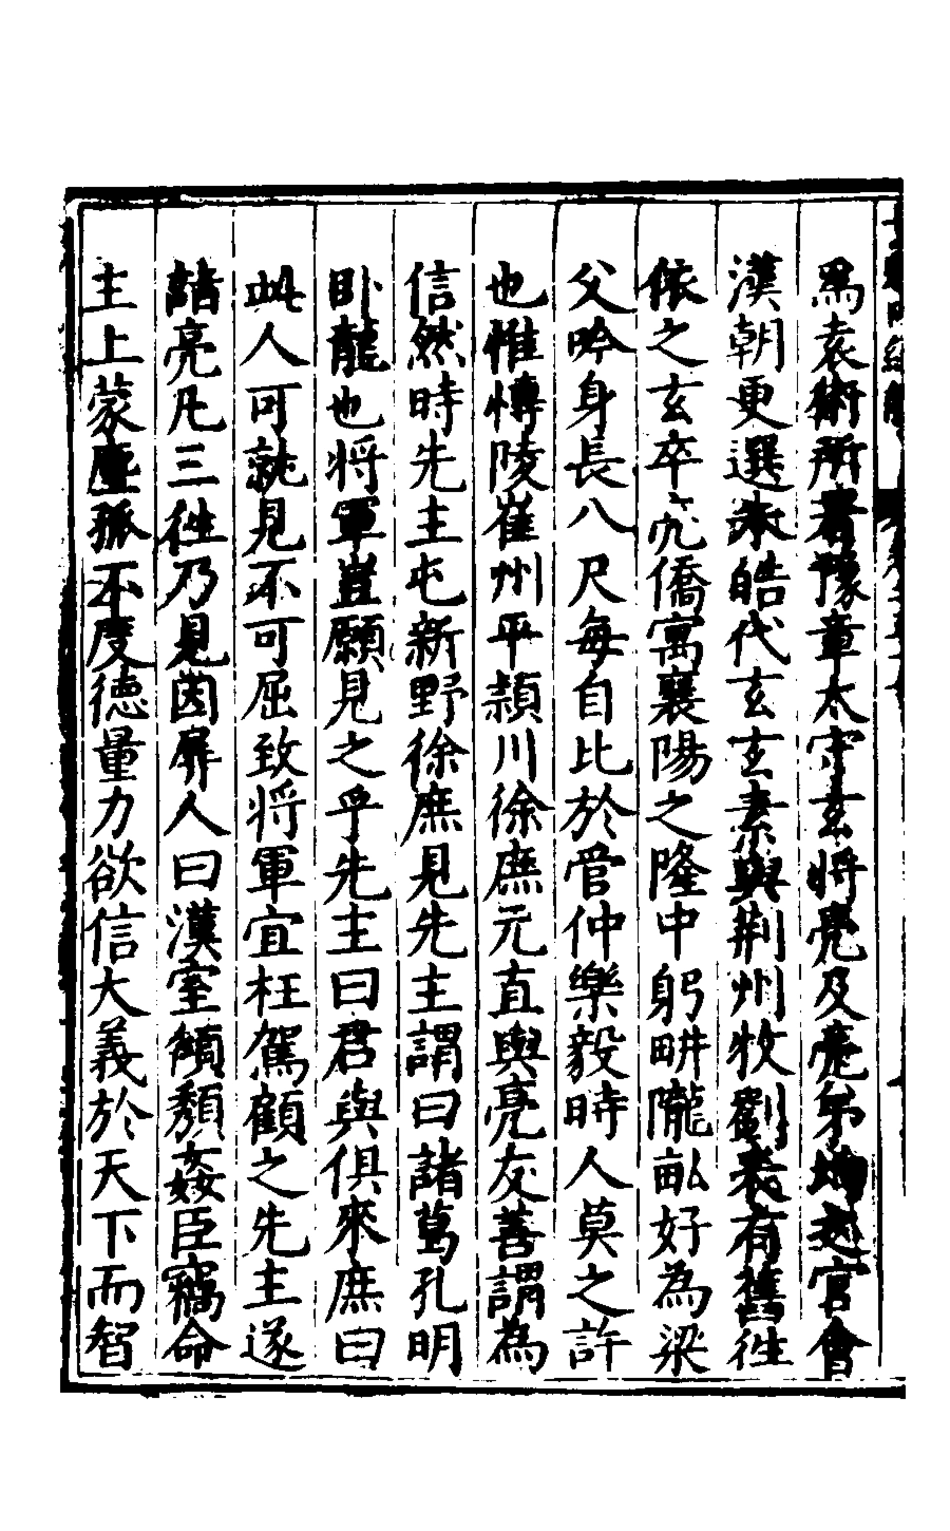 為袁術所署豫章太守玄將亮及亮弟均之官會
漢朝更選朱皓代玄玄素與荆州牧劉表有舊徃
依之玄卒亮僑寓襄陽之隆中躬畊隴畝好為梁
父吟身長八尺每自比於管仲樂毅時人莫之許
也惟愽陵崔州平頴川徐庶元直與亮友善謂為
信然時先主屯新野徐庶見先主謂曰諸葛孔明
卧龍也将軍豈願見之乎先主曰君與俱來庶曰
此人可就見不可屈致将軍宜枉駕顧之先主遂
詣亮凡三徃乃見因屏人曰漢室傾頽姦臣竊命
主上蒙塵孤不度徳量力欲信大義於天下而智